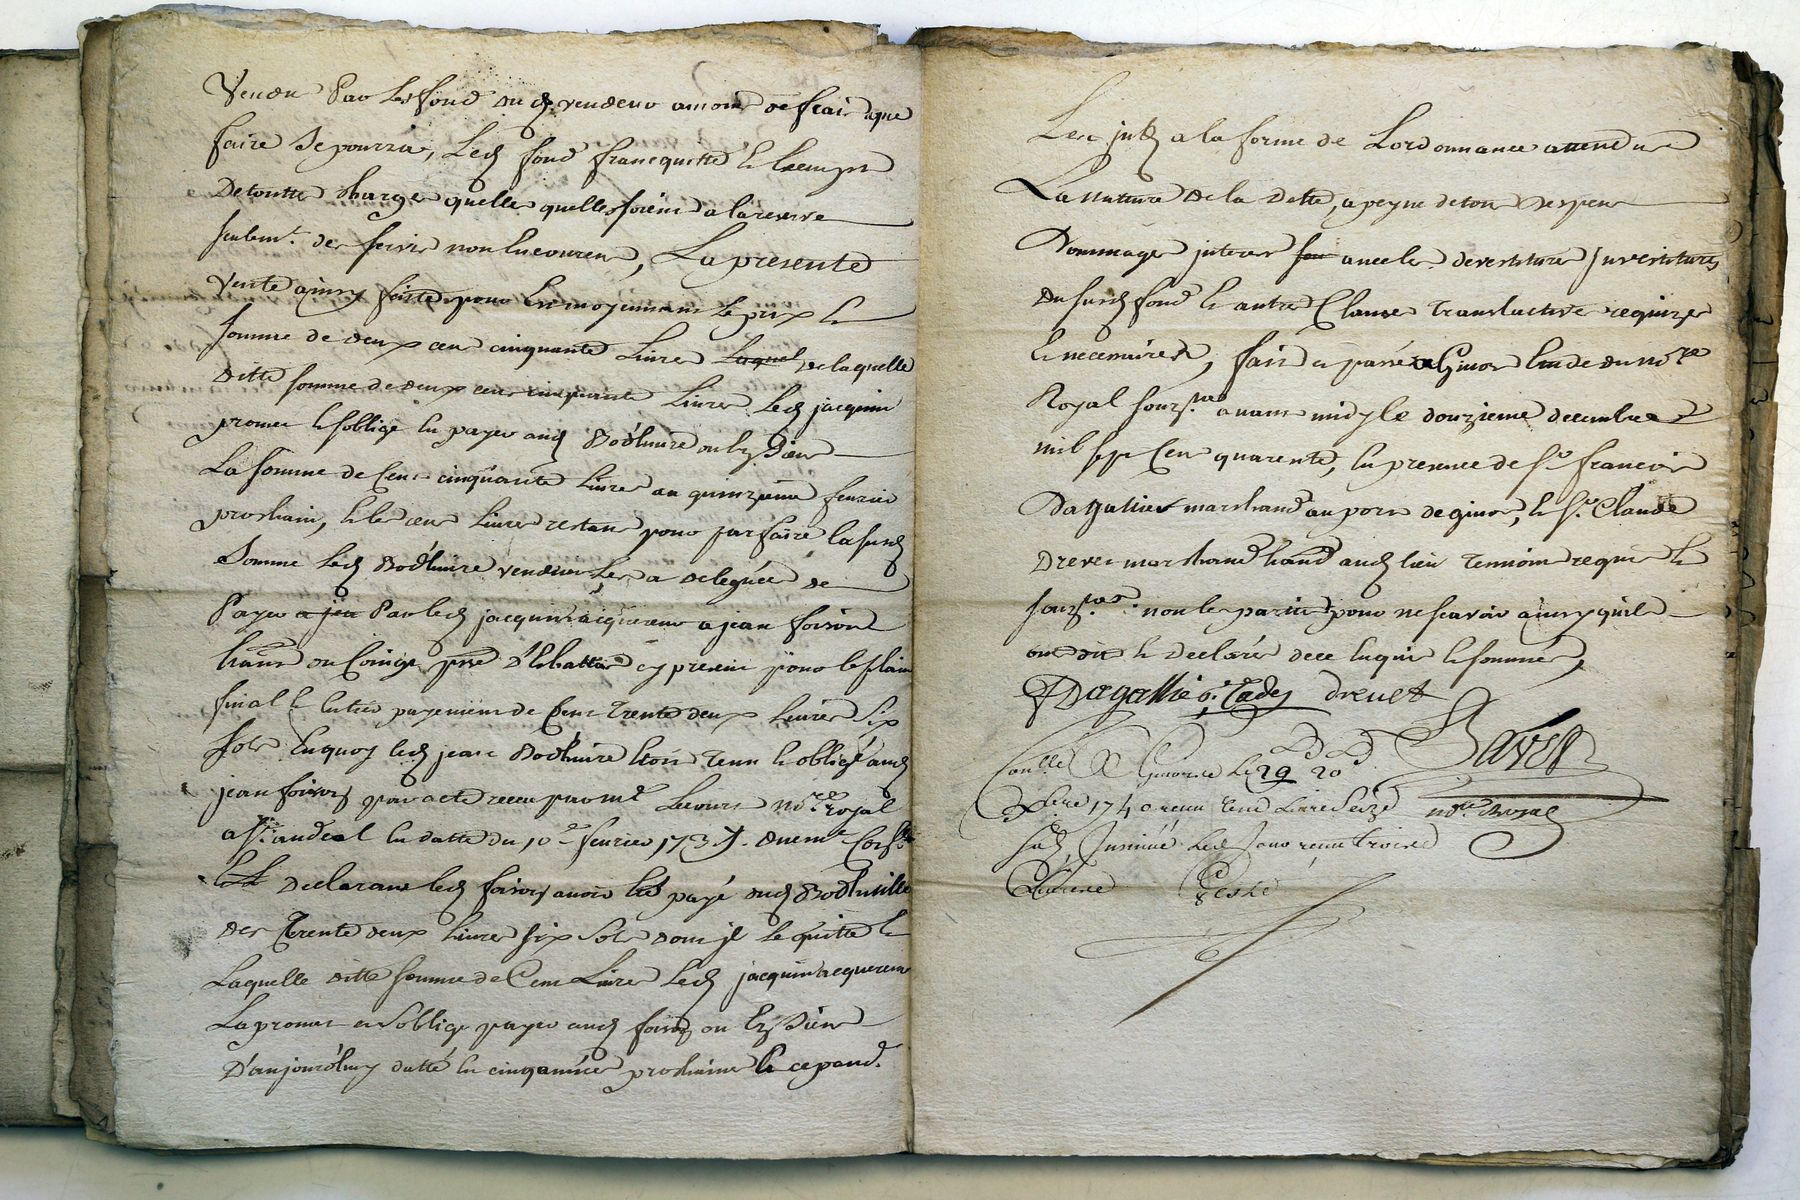 Vendu Par led fond dud vendeur a moins de frais que
faire se pourra, Led fond franc quitte et exempt
De toutte charge quelle quelles soient a la reserve
seulemt. des servis non Encourus, La presente
Vente ainsy faitte pour Et moyennant le prix et
somme de deux cent cinquante Livres laquel de laquelle
ditte somme de deux cent cinquante Livres led jacquin
promet et soblige en payer aud ou Es siens
La somme de Cent cinquante Livres au quinzieme fevrier
prochain, et les cent Livres restant pour parfaire la susd
Somme led vendeur Les a deleguée de
Payer a jea Par led jacquin acquereur a jean foison
hant ou Coinge psse cy present pour le plain
final et entier payement de Cent Trente deux Livres Six
sols Enquoy led jean Etoit Tenu et obligé aud
jean foison par acte receu par me Lecourt nore royal
a St. andeal en datte du 10e fevrier 173
Declarant led foison avoir ete payé dud
des Trente deux Livres six sols dont il le quitte et
Laquelle ditte somme de Cent Livres Led jacquin acquereur
La promet et soblige payer aud foison ou Es siens
D'aujourdhuy datte en cinq années prochaines Et cepand.
Les jntz a la forme de Lordonnance attendu
La nature de la dette, a peyne de tous despens
Dommages jnterets avec les devestiture Jnvestiture
du susd fond et autres Clauses Translactive requizes
et necessaires, fait et passé a Givors Etude du nore
Royal souzne avant midy le douzieme decembre
mil sept Cent quarente, en presence de Sr francois
Dagallier marchand au port de givors, et Sr. Claude
Drevet marchand hant aud lieu Temoins requis et
souznes non les parties pour ne scavoir ainsy quils
ont dit et declaré de ce Enquis et sommés,
Dagallié drevet
Conllé A Givors Le 29
Xbre 1740 receu Livres Seize
sols Jnsinué Led Jour receu Trois
Livres
nore Royal